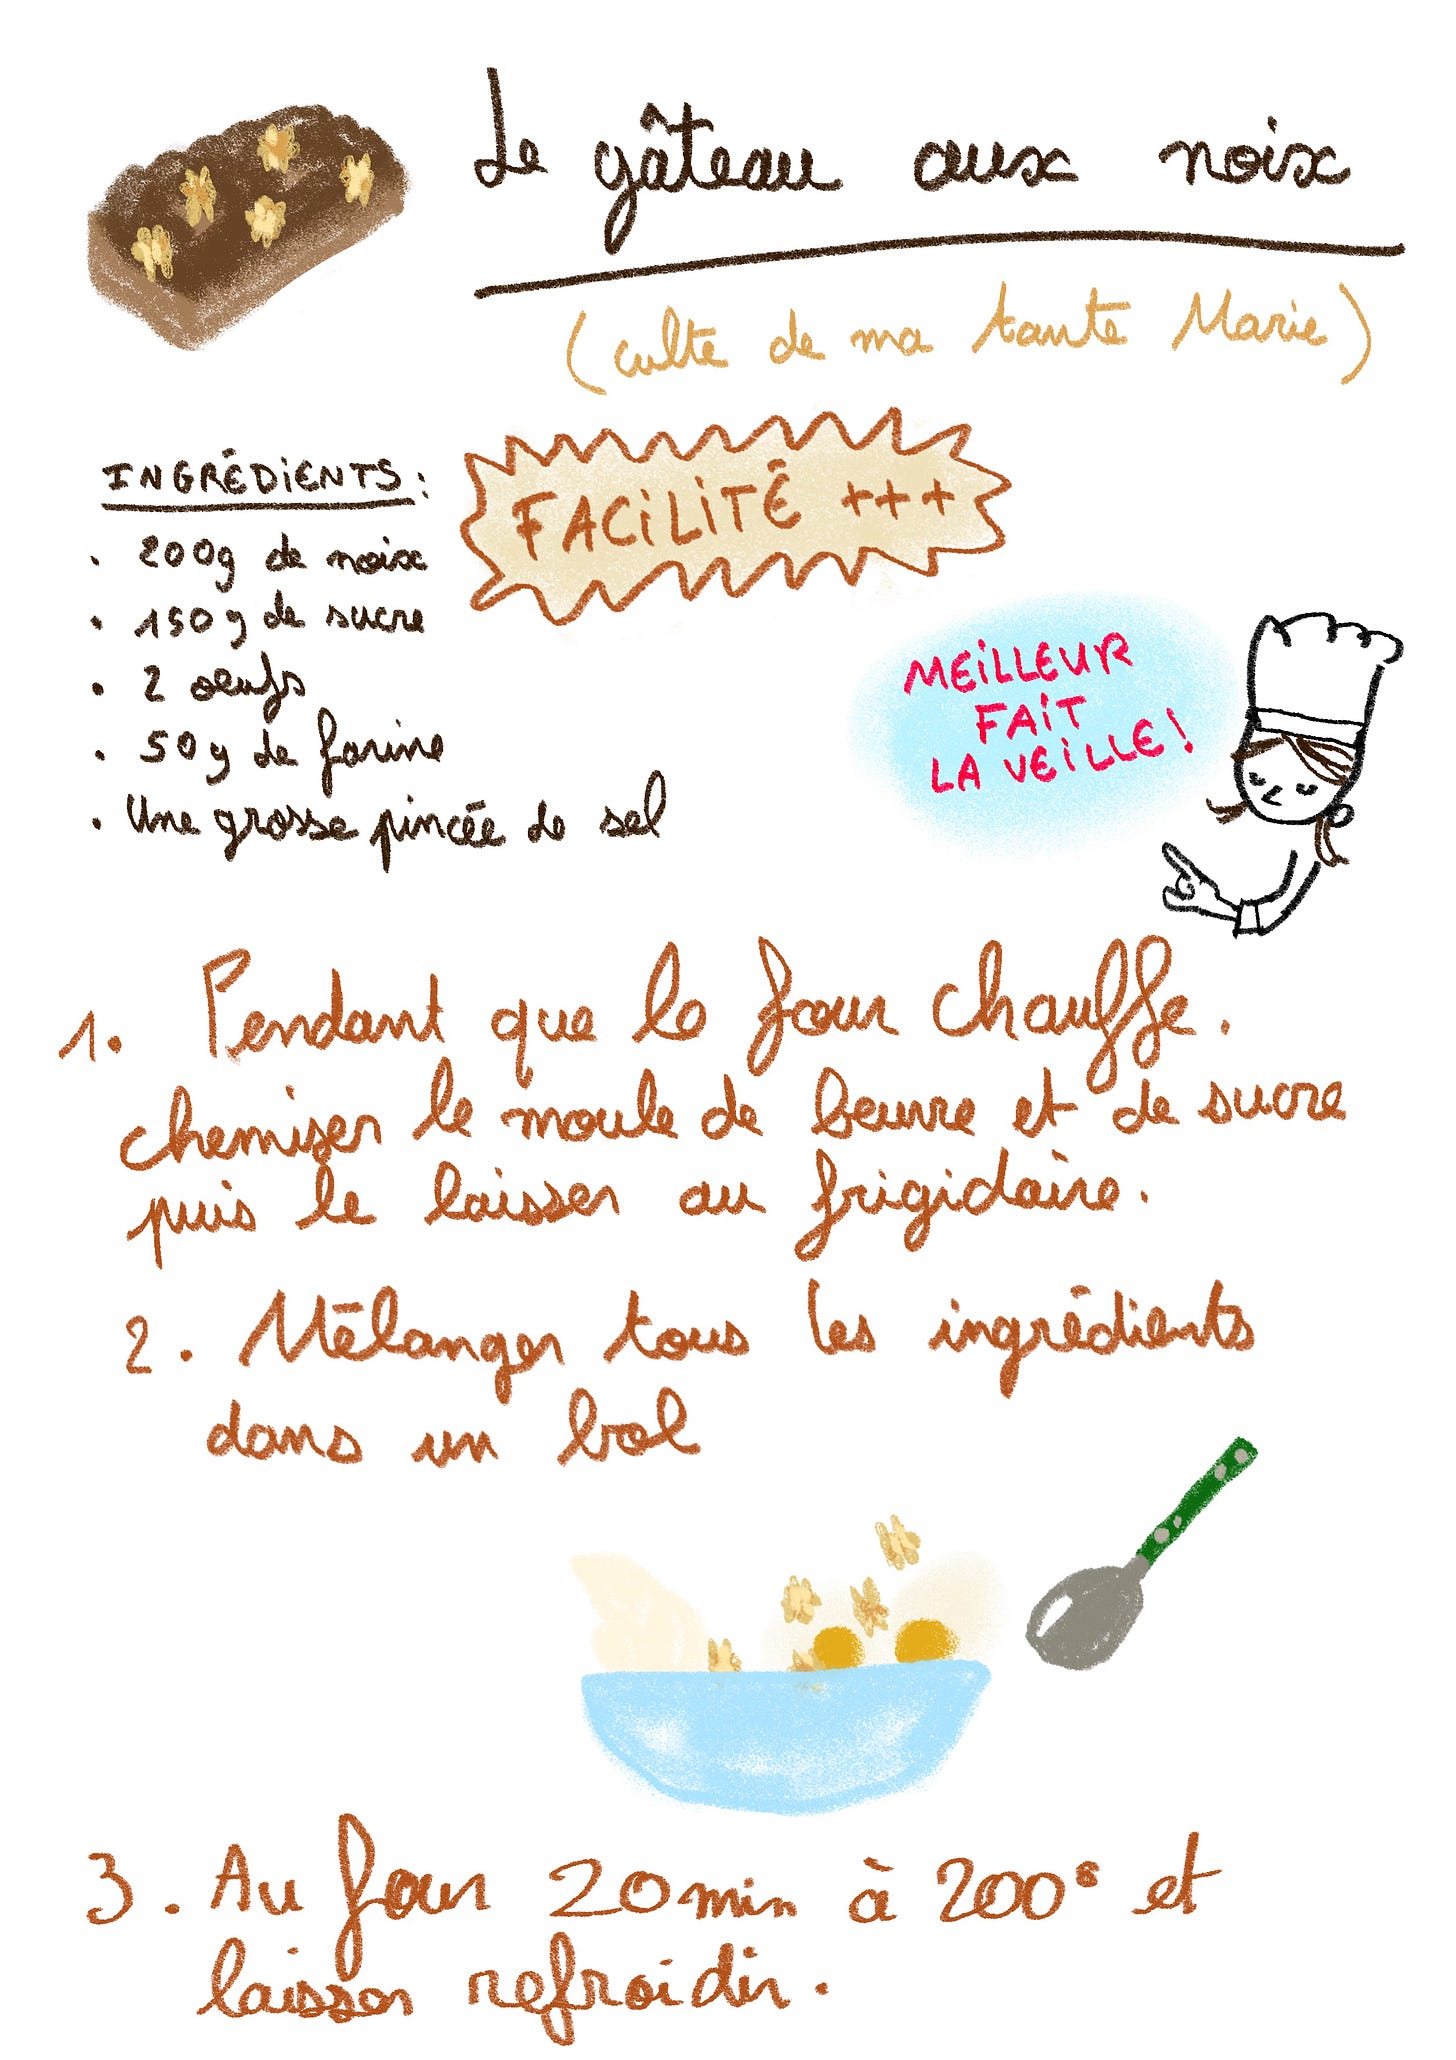 Le gâteau aux noix
(culte de ma tante Marie)
INGRÉDIENTS :
. 200g de noix
. 150g de sucre
. 2 oeufs
. 50g de farine
. Une grosse pincée de sel
FACILITÉ +++
MEILLEUR
FAIT
LA VEILLE !
1. Pendant que le four chauffe.
chemiser le moule de beurre et de sucre
puis le laisser au frigidaire.
2. Mélanger tous les ingrédients
dans un bol
3. Au four 20min à 200° et
laisser refroidir.